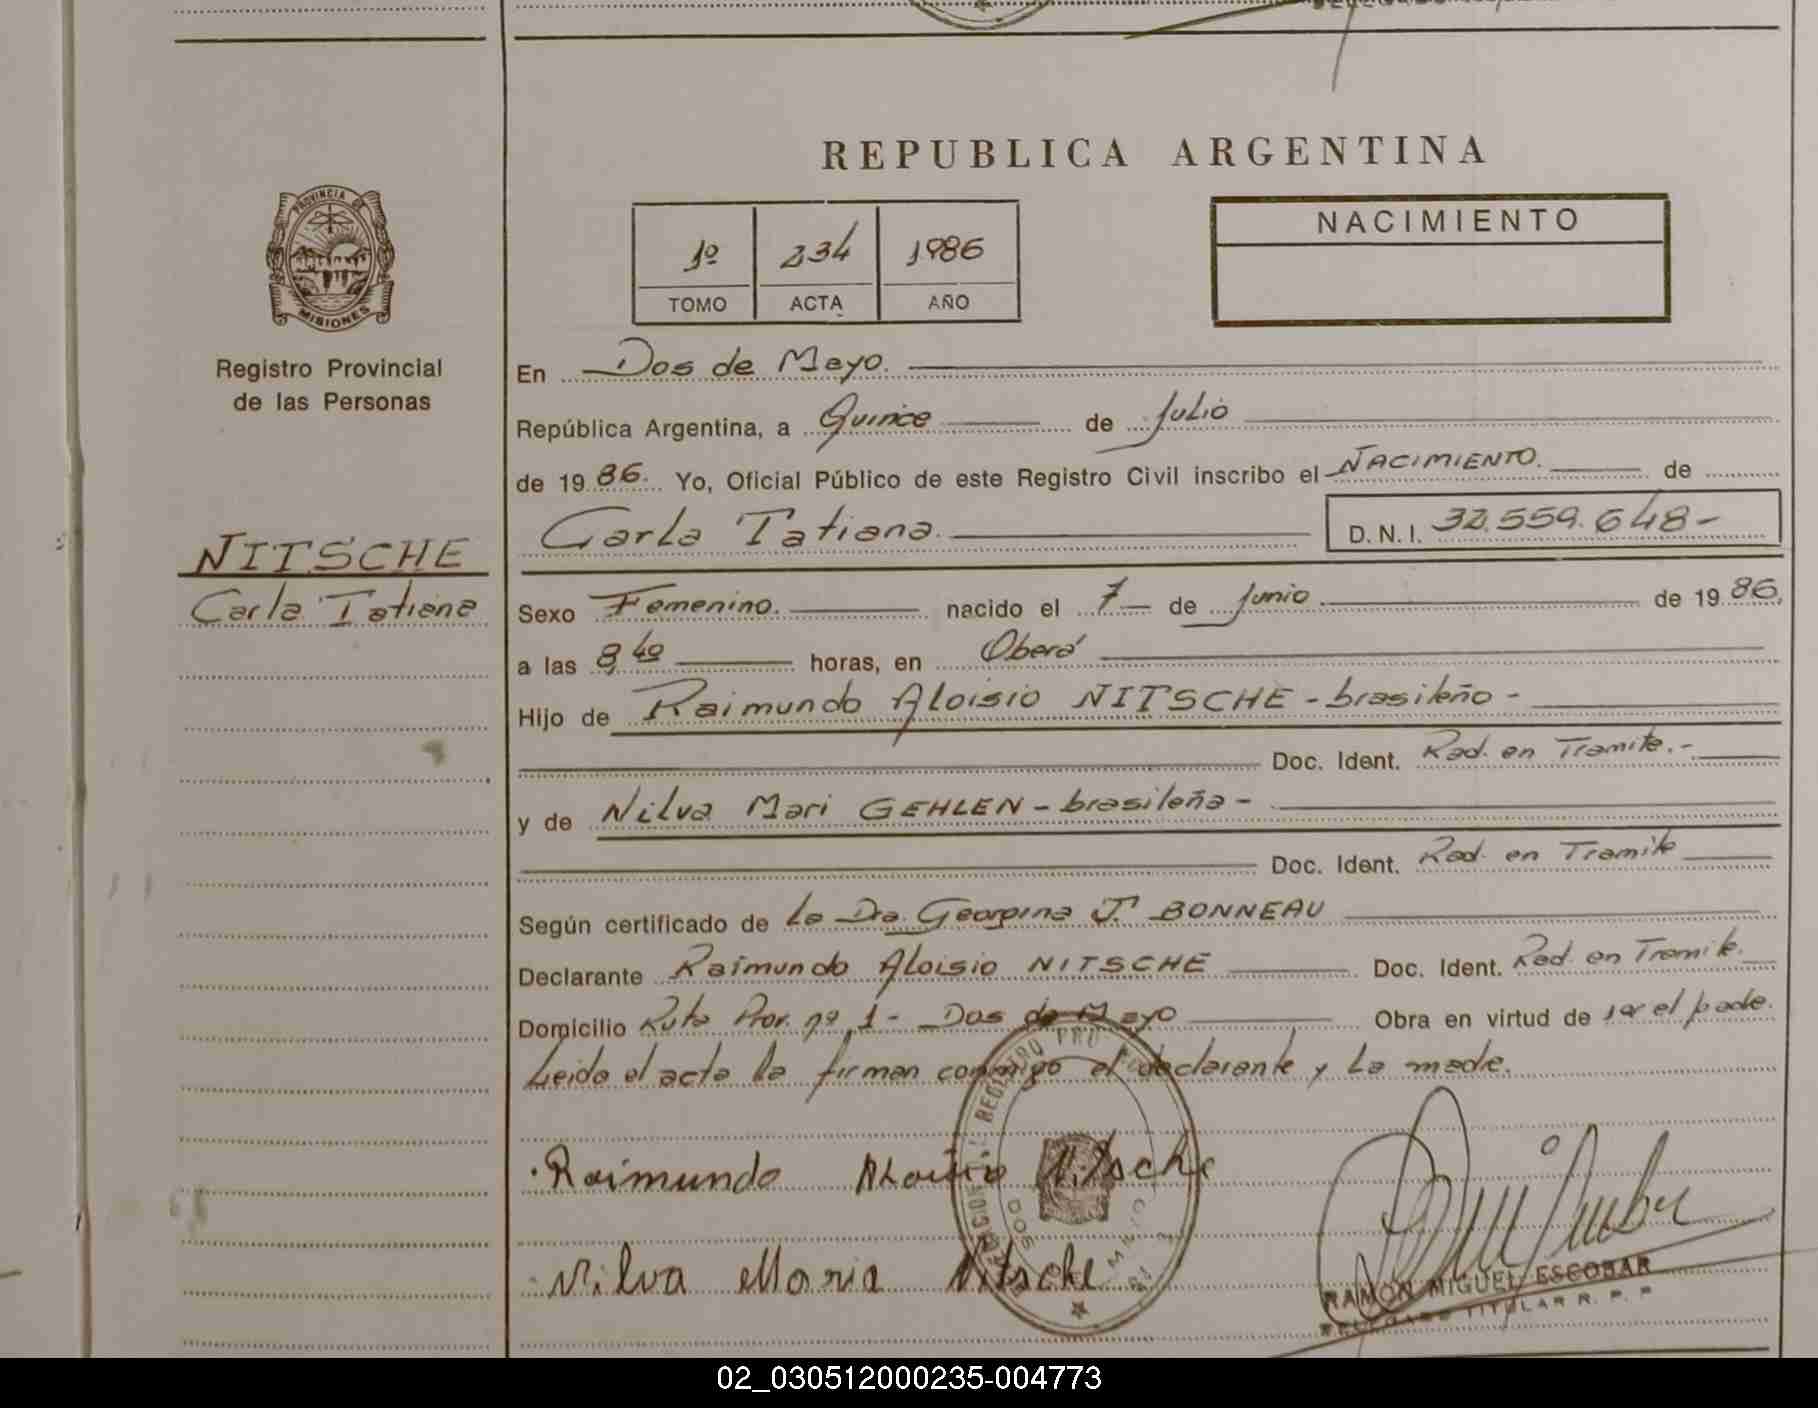 REPUBLICA ARGENTINA
PROVINCIA DE
MISIONES
Registro Provincial
de las Personas
NITSCHE
Carla Tatiana
1º 234 1986
TOMO ACTA AÑO
NACIMIENTO
En Dos de Mayo.
República Argentina, a Quince de Julio
de 1986. Yo, Oficial Público de este Registro Civil inscribo el NACIMIENTO. de
Carla Tatiana. D.N.I. 32.559.648-
Sexo Femenino. nacido el 7 de Junio de 1986.
a las 8,40 horas, en Oberá
Hijo de Raimundo Aloisio NITSCHE - brasileño -
Doc. Ident. Rad. en Tramite.-
y de Nilva Mari GEHLEN - brasileña -
Doc. Ident. Rad. en Tramite
Según certificado de La Dra. Georgina J. BONNEAU
Declarante Raimundo Aloisio NITSCHE Doc. Ident. Rad. en Tramite.
Domicilio Ruta Prov. nº 1 - Dos de Mayo Obra en virtud de ser el padre.
Leida el acta la firman conmigo el declarante y la madre.
Raimundo Aloisio Nitsche
Nilva Maria Nitsche
REGISTRO PRO
DOS MAYO
RAMON MIGUEL ESCOBAR
DELEGADO TITULAR R. P. P.
02_030512000235-004773